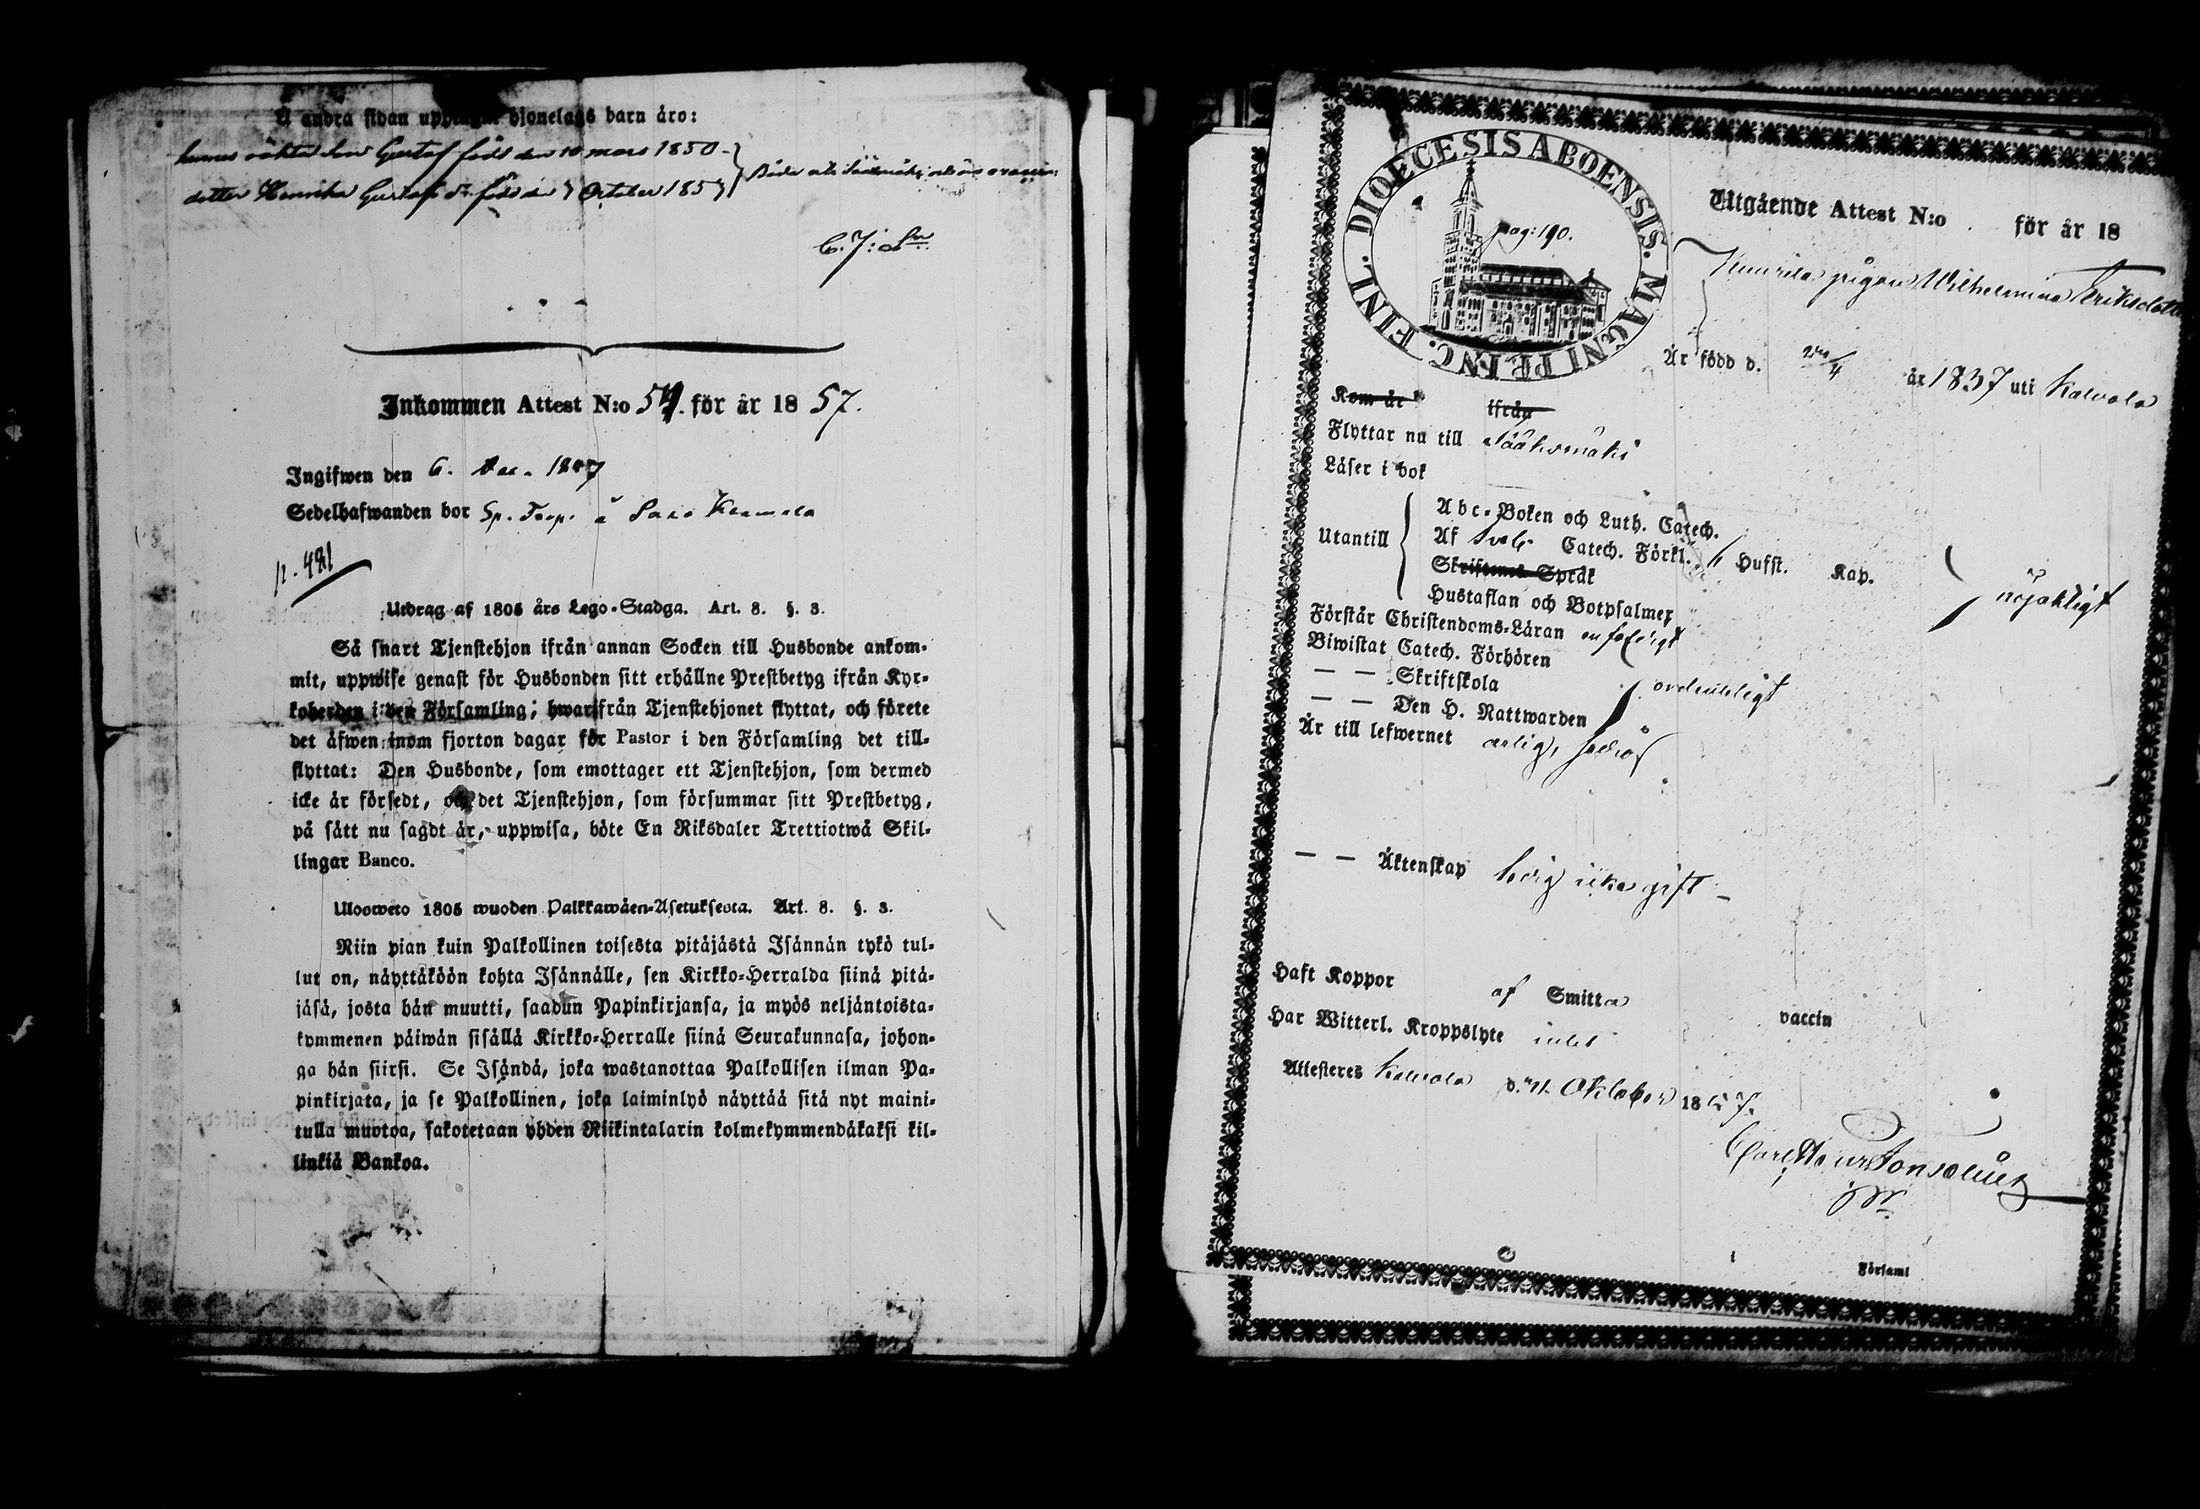 andra sidan hjonelags barn äro:
hennes oäkta son Gustaf född den 10 mars 1850
dotter Henrika Gustafs dr född den 7 October 1857
Inkommen Attest N:o 54. för år 1857.
Ingifwen den 6. Dec. 1857
Sedelhafwanden bor Sp. Torp. å
p. 481
Utdrag af 1805 års Lego-Stadga. Art. 8. §. 3.
Så snart Tjenstehjon ifrån annan Socken till Husbonde ankom-
mit, uppwise genast för Husbonden sitt erhållne Prestbetyg ifrån Kyr-
koherden i den Församling; hwarifrån Tjenstehjonet flyttat, och förete
det äfwen inom fjorton dagar för Pastor i den Församling det till-
flyttat: Den Husbonde, som emottager ett Tjenstehjon, som dermed
icke är försedt, och det Tjenstehjon, som försummar sitt Prestbetyg,
på sätt nu sagdt är, uppwisa, böte En Riksdaler Trettiotwå Skil-
lingar Banco.
Ulosweto 1805 wuoden Palkkawäen-Asetuksesta. Art. 8. §. 3.
Niin pian kuin Palkollinen toisesta pitäjästä Isännän tykö tul-
lut on, näyttäköön kohta Isännälle, sen Kirkko-Herralda siinä pitä-
jäsä, josta hän muutti, saadun Papinkirjansa, ja myös neljäntoista-
kymmenen päiwän sisällä Kirkko-Herralle siinä Seurakunnasa, johon-
ga hän siirsi. Se Isändä, joka wastanottaa Palkollisen ilman Pa-
pinkirjata, ja se Palkollinen, joka laiminlyö näyttää sitä nyt maini-
tulla muotoa, sakotetaan yhden Riikintalarin kolmekymmendäkaksi kil-
linkiä Bankoa.
DIOECESIS ABOENSIS. MAGNI PRINC. FINL.
pag: 190.
Utgående Attest N:o för år 18
pigan Wilhelmina Eriksdotter
Är född d. 2/4 år 1837 uti Kalvola
Kom år ifrån
Flyttar nu till Sääksmäki
Läser i bok
Utantill
Abc-Boken och Luth. Catech.
Af Sveb. Catech. Förkl. Hufst. Kap.
Skriftenes Språk
Hustaflan och Botpsalmer
nöjaktigt
Förstår Christendoms-Läran
Biwistat Catech. Förhören
— — Skriftskola
ordentligt
— — Den H. Nattwarden
Är till lefwernet ärlig,
— — Äktenskap ledig icke gift
Haft Koppor af Smitta vaccin
Har Witterl. Kroppslyte intet
Attesteras Kalvola d. 21. Oktober 1857.
Församl